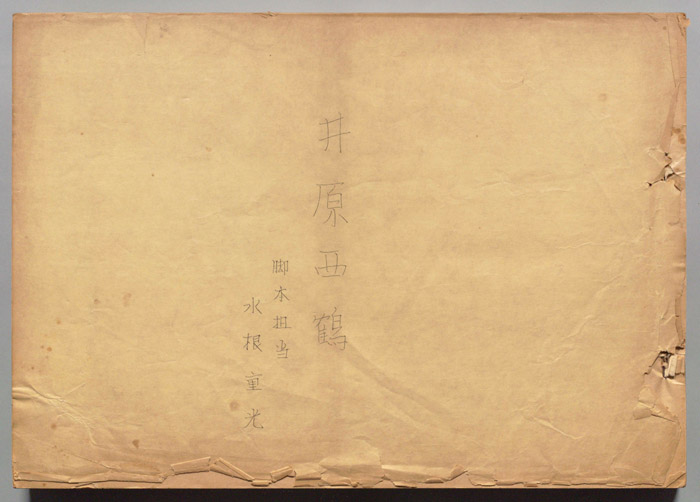 井原西鶴
脚本担当
水根重光